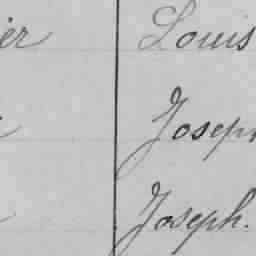 Louis
Joseph
Joseph.